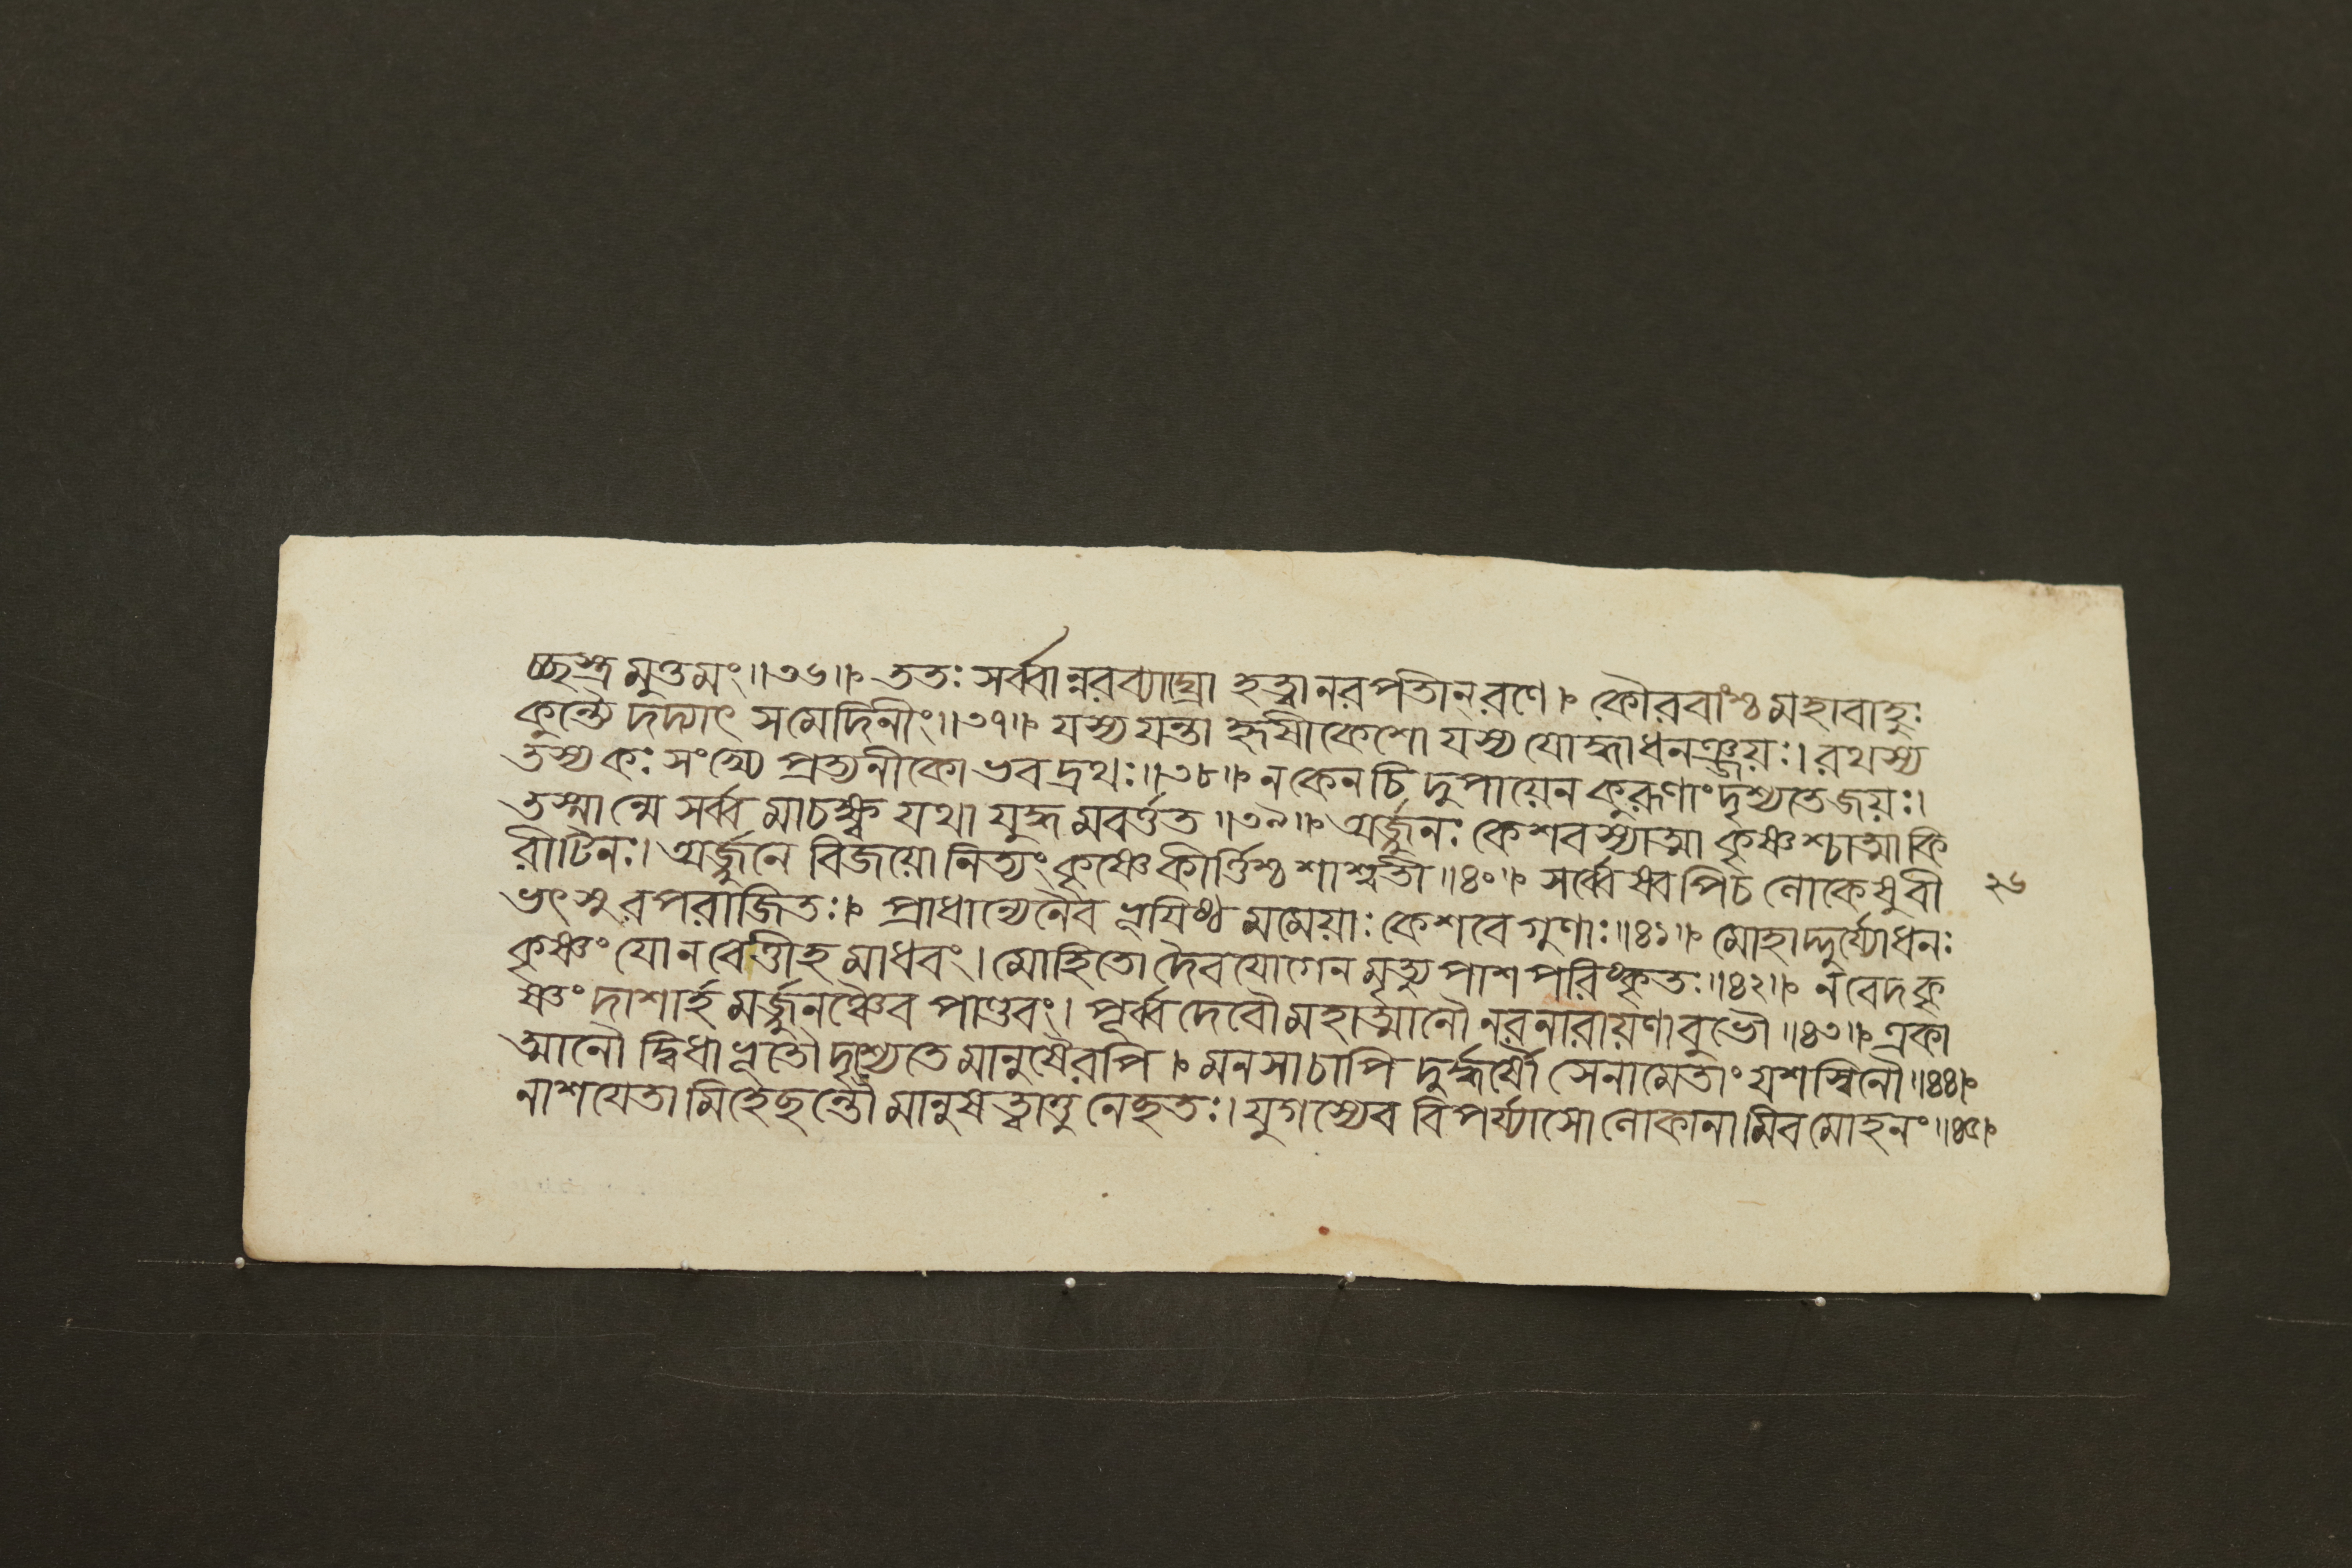 চ্ছস্ত্রমুত্তমং॥৩৬॥ ততঃ সর্ব্বান্নরব্যাঘ্রো হত্বানরপতীন্রণে। কৌরবাংশ্চমহাবাহুঃ
কুন্ত্যৈ দদ্যাৎ সমেদিনীং॥৩৭॥ যস্যযন্তা হৃষীকেশো যস্যযোদ্ধাধনঞ্জয়ঃ। রথস্য
তস্যকঃ সংখ্যে প্রত্যনীকো ভবদ্রথঃ॥৩৮॥ নকেনচিদুপায়েন কুরূণাংদৃশ্যতেজয়ঃ।
তস্মান্মে সর্ব্বমাচক্ষ্ব যথা যুদ্ধমবর্ত্তত॥৩৯॥ অর্জ্জুনঃ কেশবস্যাত্মা কৃষ্ণশ্চাত্মাকি
রীটিনঃ। অর্জ্জুনে বিজয়োনিত্যং কৃষ্ণেকীর্ত্তিশ্চশাশ্বতী॥৪০॥ সর্ব্বেষ্বপিচ লোকেষুবী ২৬
ভৎসুরপরাজিতঃ। প্রাধান্যেনৈব ভূয়িষ্ঠমমেয়াঃ কেশবেগুণাঃ॥৪১॥ মোহাদ্দুর্য্যোধনঃ
কৃষ্ণংযোনবেত্তীহমাধবং। মোহিতো দৈবযোগেনমৃত্যুপাশপরিষ্কৃতঃ॥৪২॥ নবেদকৃ
ষ্ণং দাশার্হমর্জ্জুনঞ্চৈবপাণ্ডবং। পূর্ব্বদেবৌমহাত্মানৌ নরনারায়ণাবুভৌ॥৪৩॥ একা
ত্মানৌ দ্বিধাভূতৌ দৃশ্যেতেমানুষৈরপি। মনসাচাপি দুর্দ্ধর্ষৌ সেনামেতাং যশস্বিনৌ॥৪৪॥
নাশয়েতামিহেছন্তৌ মানুষত্বাত্তুনেছতঃ। যুগস্যেব বিপর্য্যাসোলোকানামিবমোহনং॥৪৫॥